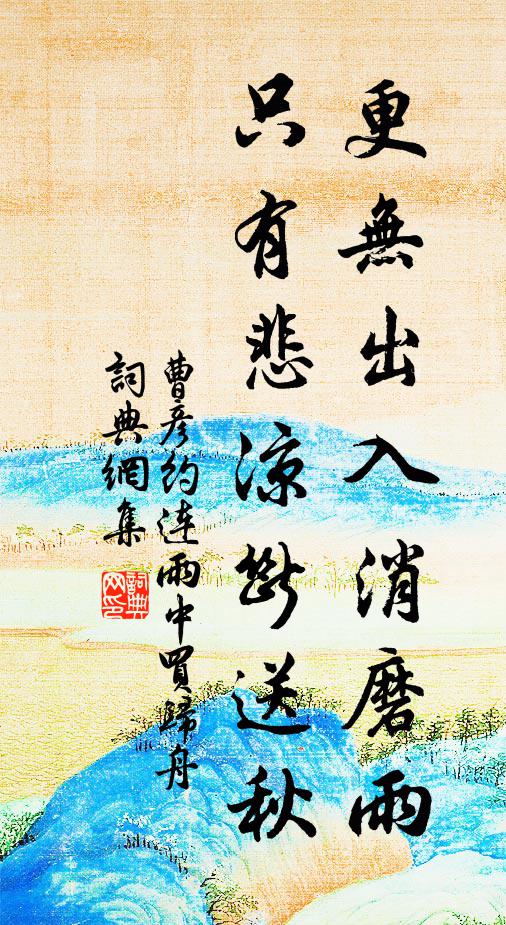 更無出入消磨雨
只有悲涼斷送秋
曹彥約連雨中買歸舟
詞典網集
詞典网印